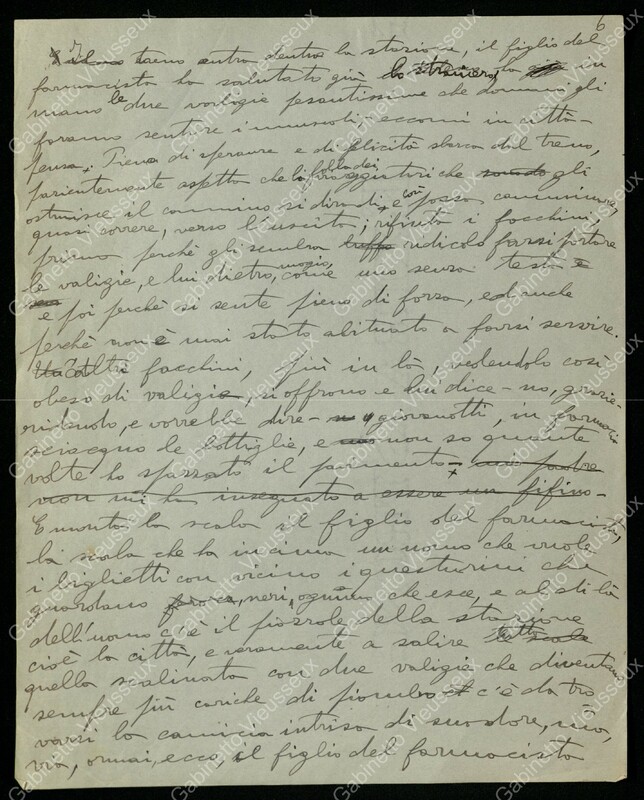 6
Il treno entra dentro la stazione, il figlio del
farmacista ha salutato già lo straniero, ha in
mano le due valigie pesantissime che domani gli
faranno sentire i muscoli, eccomi in città-
pensa. Pieno di speranze e di felicità sbarca dal treno,
pazientemente aspetta che la folla dei viaggiatori che gli
ostruisce il cammino si diradi, e così possa camminare,
quasi correre, verso l'uscita; rifiuta i facchini,
prima perché gli sembra ridicolo farsi portare
le valigie, e lui dietro, mogio, come uno senza testa
e poi perché si sente pieno di forza, ed anche
perché non è mai stato abituato a farsi servire.
Altri facchini, più in là, vedendolo così
obeso di valigie, si offrono e lui dice - no, grazie -
ridendo, e vorrebbe dire - giovanotti, in farmacia
sciacquo le bottiglie, e non so quante
volte ho spazzato il pavimento - mio padre
non mi ha insegnato a essere un fifino -
E monta la scala il figlio del farmacista,
la scala che ha in cima un uomo che vuole
i biglietti con vicino i questurini che
guardano, neri, ognuno che esce, e al di là
dell'uomo c'è il piazzale della stazione
cioè la città, e veramente a salire
quella scalinata con due valigie che diventano
sempre più cariche di piombo c'è da tro
varsi la camicia intrisa di sudore, ma,
via, ormai, ecco, il figlio del farmacista
Gabinetto Vieusseux